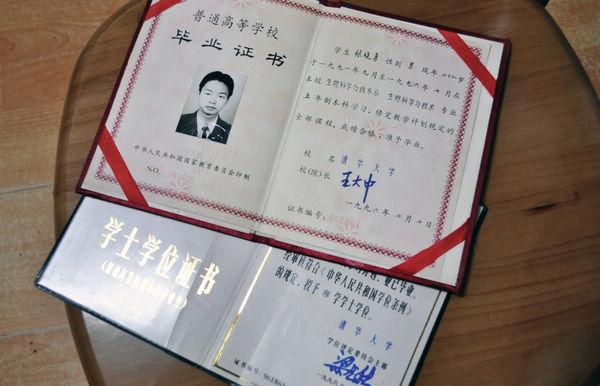 普通高等学校
毕业证书
中华人民共和国国家教育委员会印制
NO.
学生 张晓勇 性别 男 现年 二十二 岁
于一九九一年九月至一九九六年七月在
本校 生物科学与技术系 生物科学与技术 专业
五年制本科学习,修完教学计划规定的
全部课程,成绩合格,准予毕业。
校 名 清华大学
校(院)长 王大中
一九九六年七月十日
证书编号:
学士学位证书
业已毕业。
经审核符合《中华人民共和国学位条例》
的规定,授予 理 学学士学位。
清华大学
学位评定委员会主席
证书编号: